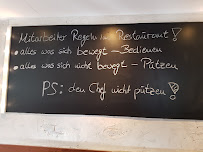 Mitarbeiter Regeln im Restaurant!
• alles was sich bewegt – Bedienen
• alles was sich nicht bewegt – Putzen
PS: den Chef nicht putzen!